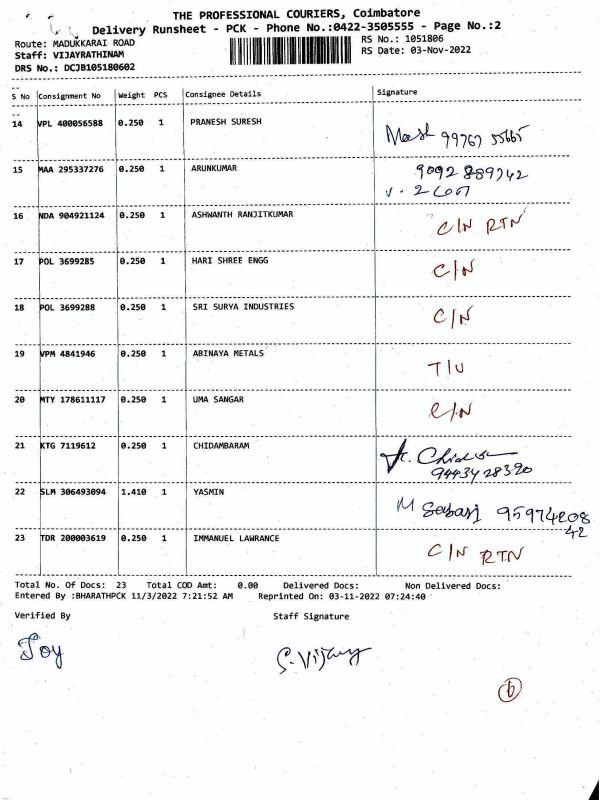 THE PROFESSIONAL COURIERS, Coimbatore
Delivery Runsheet - PCK - Phone No.:0422-3505555 - Page No.:2
Route: MADUKKARAI ROAD RS No.: 1051806
Staff: VIJAYRATHINAM RS Date: 03-Nov-2022
DRS No.: DCJB105180602
S No Consignment No Weight PCS Consignee Details Signature
14 VPL 400056588 0.250 1 PRANESH SURESH 99767 55665
15 MAA 295337276 0.250 1 ARUNKUMAR 9092889742
16 NDA 904921124 0.250 1 ASHWANTH RANJITKUMAR C/N RTN
17 POL 3699285 0.250 1 HARI SHREE ENGG C/N
18 POL 3699288 0.250 1 SRI SURYA INDUSTRIES C/N
19 VPM 4841946 0.250 1 ABINAYA METALS T/U
20 MTY 178611117 0.250 1 UMA SANGAR C/N
21 KTG 7119612 0.250 1 CHIDAMBARAM
9443428390
22 SLM 306493094 1.410 1 YASMIN M 95974208
42
23 TDR 200003619 0.250 1 IMMANUEL LAWRANCE C/N RTN
Total No. Of Docs: 23 Total COD Amt: 0.00 Delivered Docs: Non Delivered Docs:
Entered By :BHARATHPCK 11/3/2022 7:21:52 AM Reprinted On: 03-11-2022 07:24:40
Verified By Staff Signature
Joy S. Vijay
6